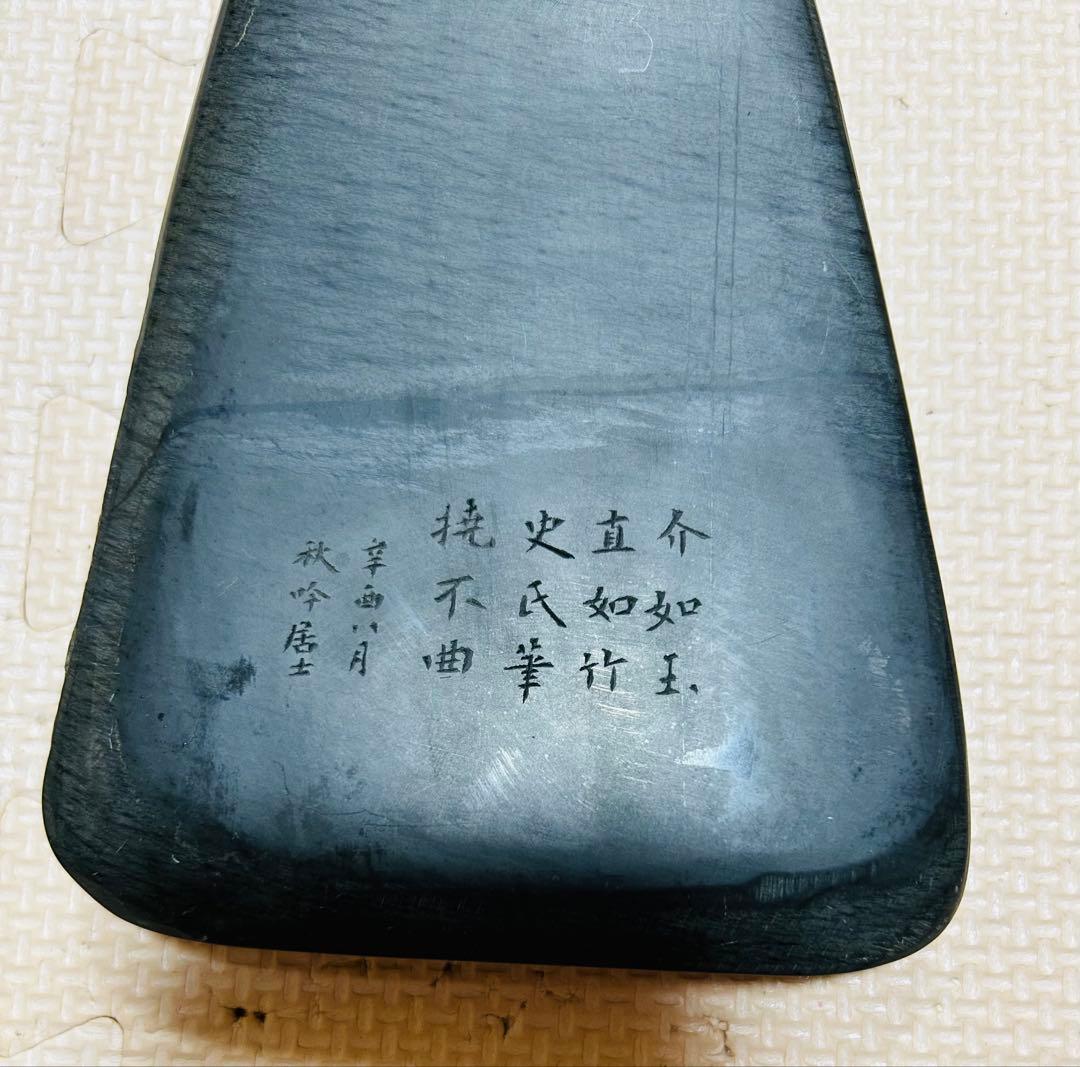 介如玉
直如竹
史氏筆
撓不曲
辛酉八月
秋吟居士